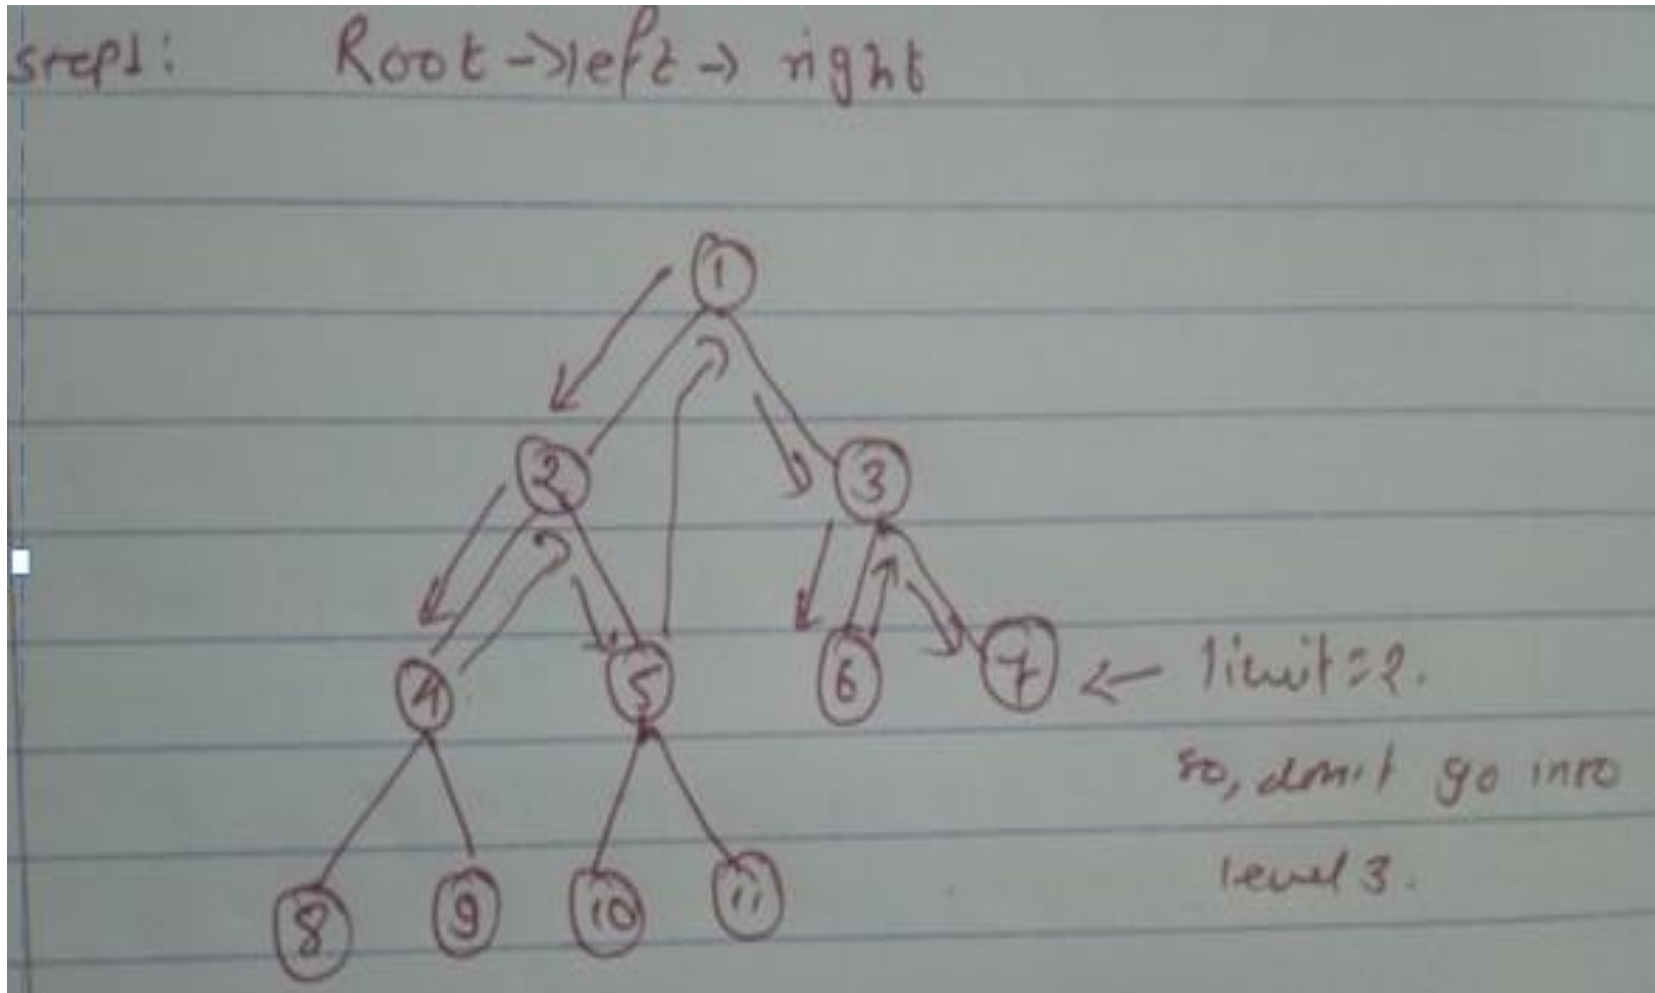 step1: Root → left → right
1
2 3
4 5 6 7 ← limit = 2.
so, don't go into
level 3.
8 9 10 11